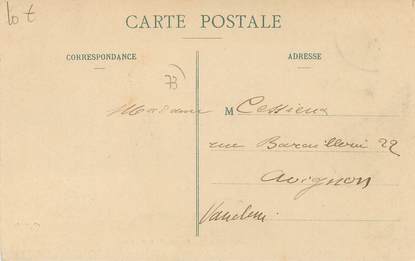 lot
CARTE POSTALE
CORRESPONDANCE
ADRESSE
73
Madame M Cessieux
rue 22
Avignon
Vaucluse